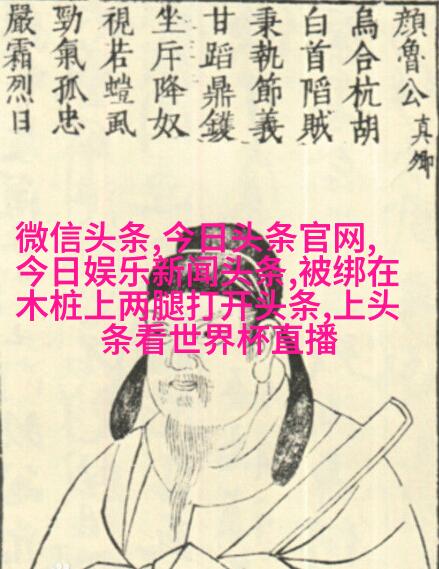 顔魯公真卿
烏合杭胡
白首陷賊
秉執節義
甘蹈鼎鑊
坐斥降奴
視若螘虱
勁氣孤忠
嚴霜烈日
微信头条,今日头条官网,
今日娱乐新闻头条,被绑在
木桩上两腿打开头条,上头
条看世界杯直播